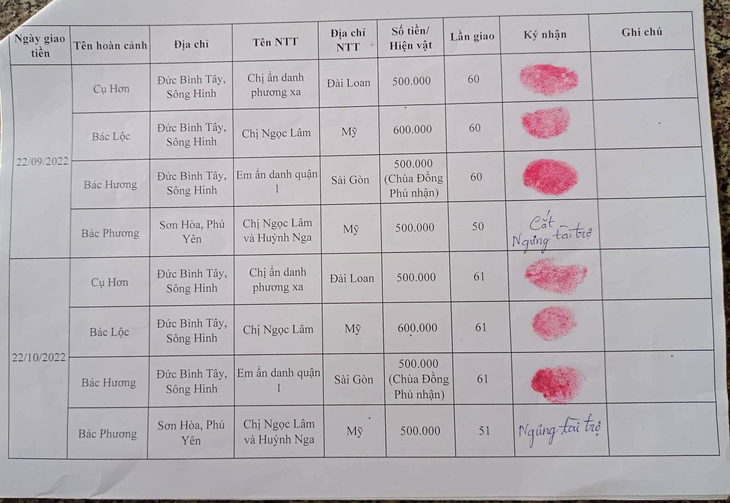 Ngày giao tiền
Tên hoàn cảnh
Địa chỉ
Tên NTT
Địa chỉ NTT
Số tiền/ Hiện vật
Lần giao
Ký nhận
Ghi chú
22/09/2022
Cụ Hơn
Đức Bình Tây, Sông Hinh
Chị ẩn danh phương xa
Đài Loan
500.000
60
Bác Lộc
Đức Bình Tây, Sông Hinh
Chị Ngọc Lâm
Mỹ
600.000
60
Bác Hương
Đức Bình Tây, Sông Hinh
Em ẩn danh quận 1
Sài Gòn
500.000 (Chùa Đồng Phú nhận)
60
Bác Phương
Sơn Hòa, Phú Yên
Chị Ngọc Lâm và Huỳnh Nga
Mỹ
500.000
50
Cắt
Ngưng tài trợ
22/10/2022
Cụ Hơn
Đức Bình Tây, Sông Hinh
Chị ẩn danh phương xa
Đài Loan
500.000
61
Bác Lộc
Đức Bình Tây, Sông Hinh
Chị Ngọc Lâm
Mỹ
600.000
61
Bác Hương
Đức Bình Tây, Sông Hinh
Em ẩn danh quận 1
Sài Gòn
500.000 (Chùa Đồng Phú nhận)
61
Bác Phương
Sơn Hòa, Phú Yên
Chị Ngọc Lâm và Huỳnh Nga
Mỹ
500.000
51
Ngưng tài trợ